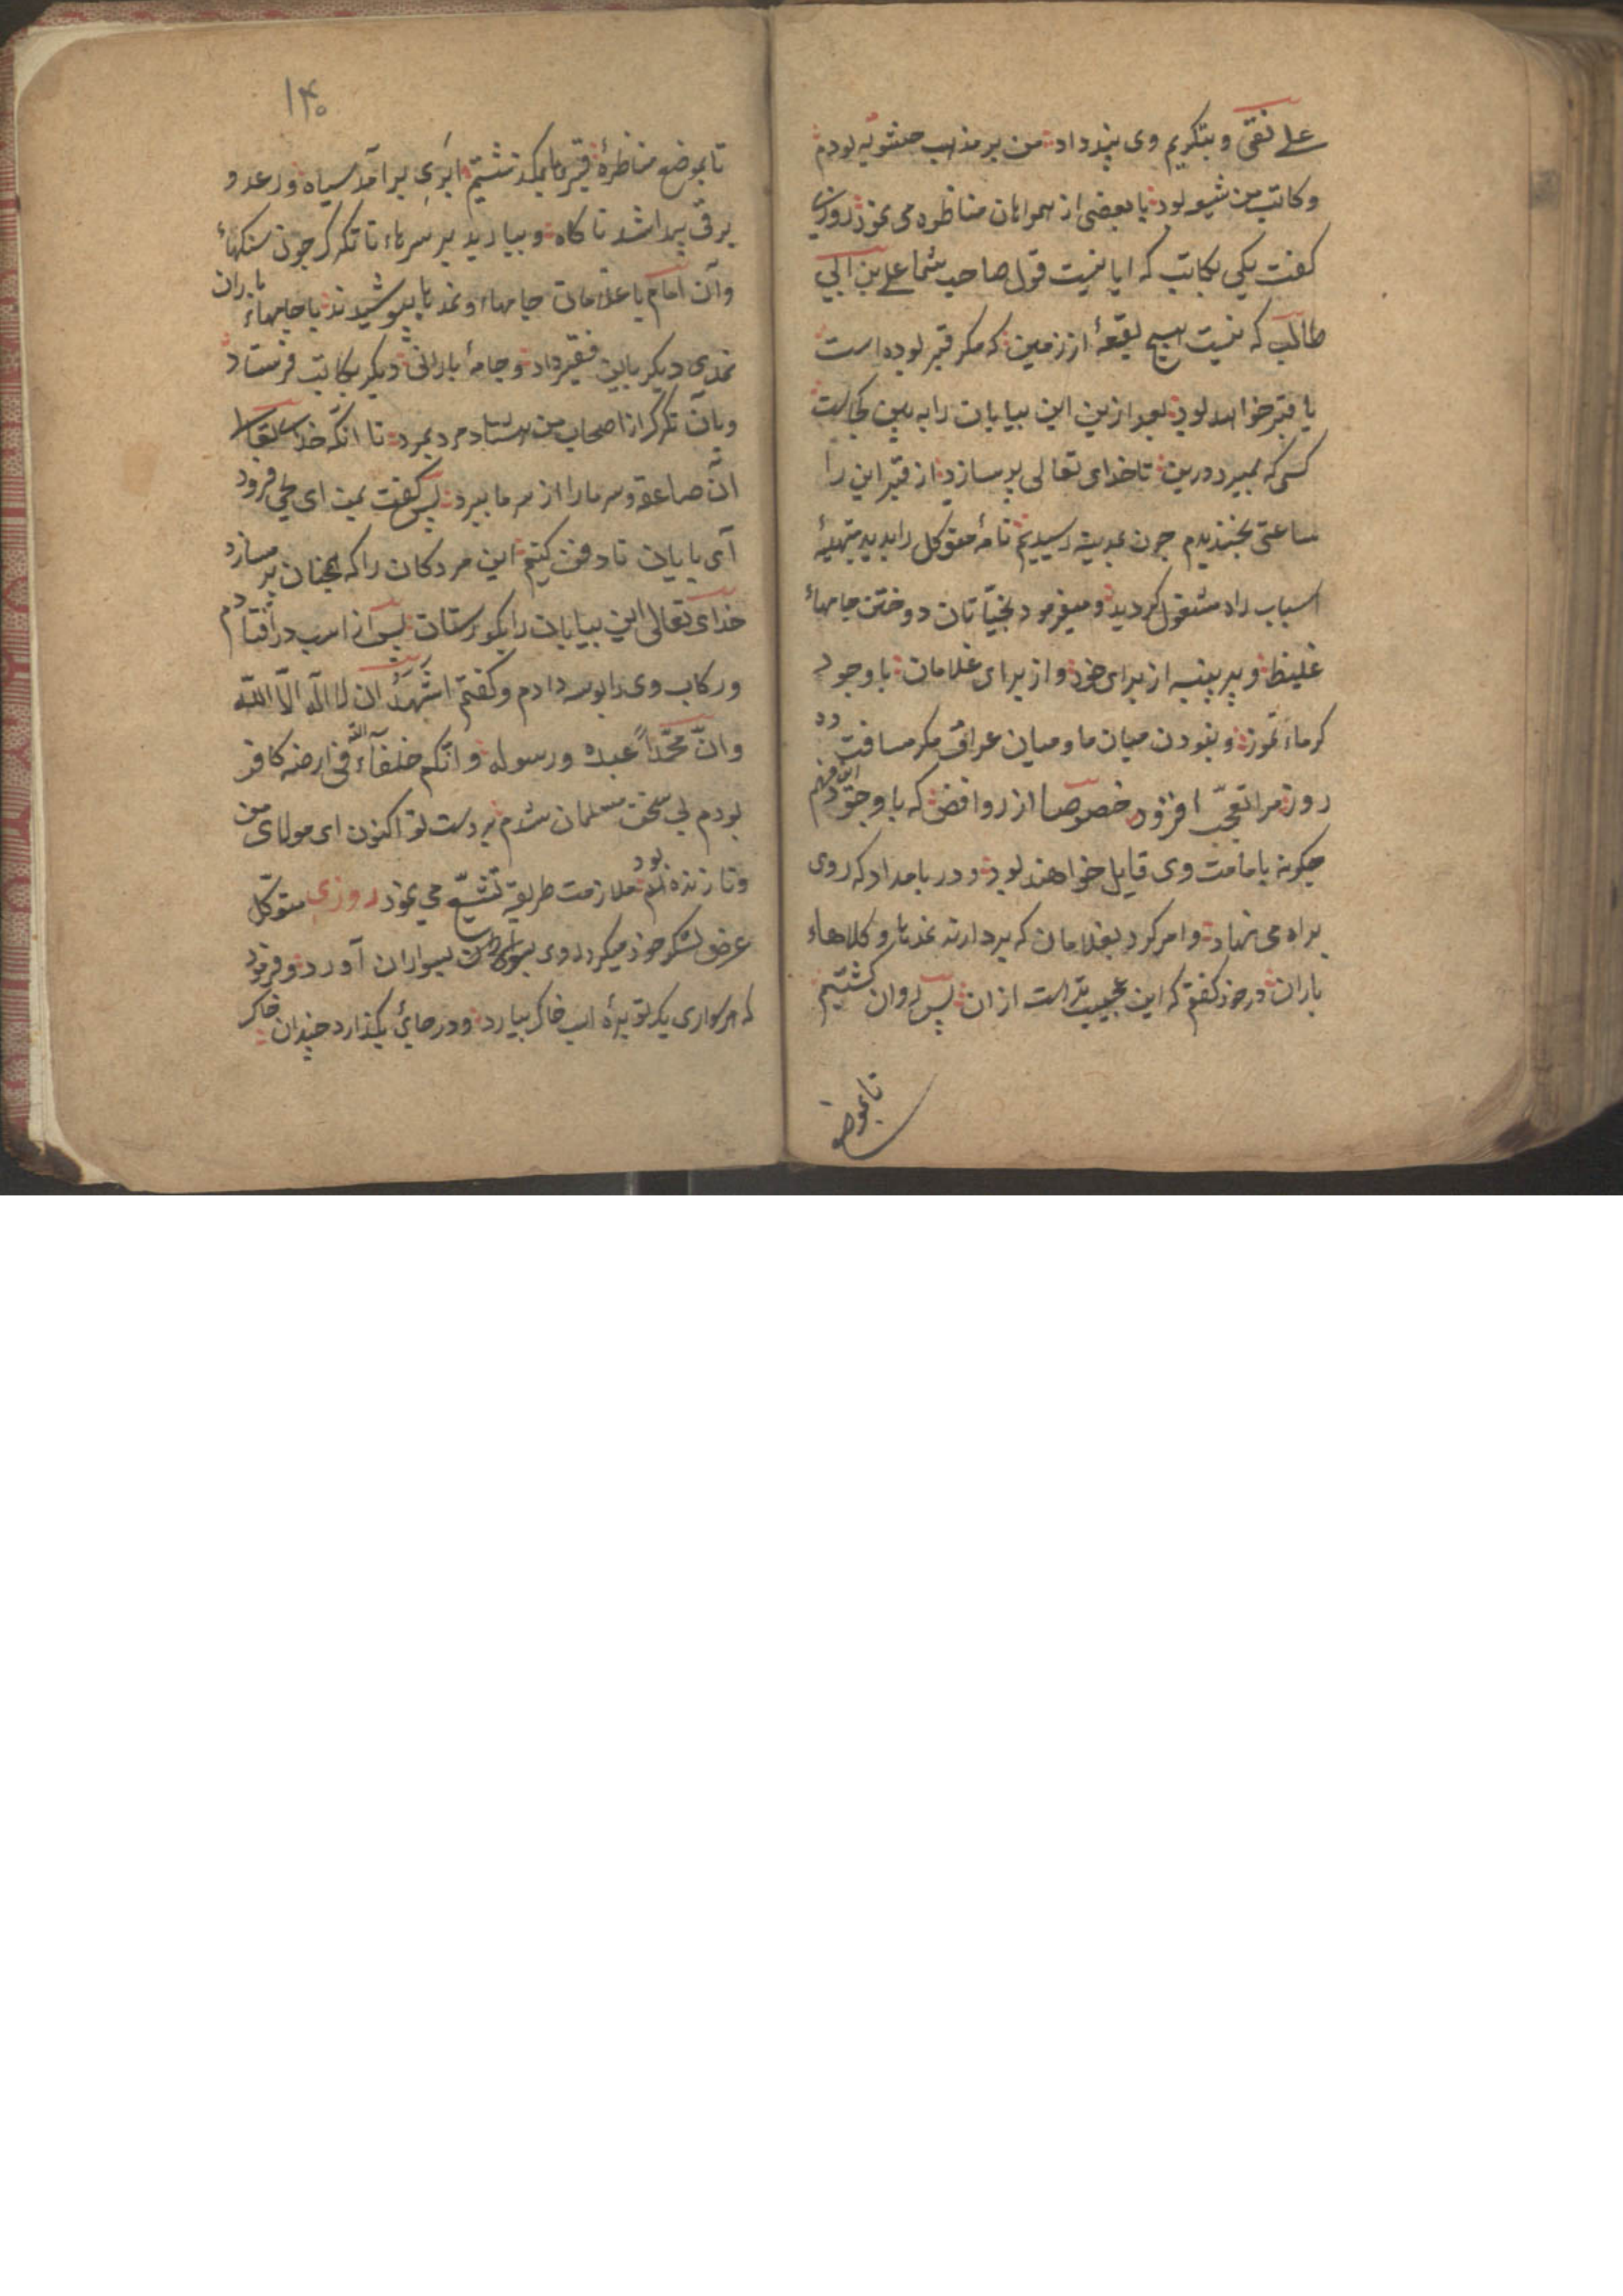 علی نقی و بتکریم وی پند داد من بر مذهب حشویه بودم
و کاتب من شیعه بود با بعضی از همراهان مناظره می نمود روزی
کفت یکی بکاتب که ایا نیست قول صاحب شما علی بن ابی
طالب که نیست هیچ بقعهٔ از زمین که مکر قبر بوده است
یا قبر خواهد بود بعد ازین این بیابان را به بین کجاست
کسی که بمیرد درین تا خدای تعالی پر سازد از قبر این را
ساعتی بخندیدم جون بمدینه رسیدیم نامهٔ متوکل را بدید بتهیهٔ
اسباب راه مشغول کردید و میفرمود بخیّاتان دوختن جامهاء
غلیظ و پر پنبه از برای خود و از برای غلامان با وجود
کرماء تموز و نبودن میان ما و میان عراق مکر مسافت ده
روز مرا تعجّب افزود خصوصا از روافض که با وجود این فهم
جکونه بامامت وی قایل خواهند بود و در بامداد که روی
براه می نهاد و امر کرد بغلامان که بردارند نمدها و کلاهاء
باران در خود کفتم که این عجیب تر است از ان پس روان کشتیم
تا بموضع
۱۴۰
تا بموضع مناظرهٔ قبرها بکذشتیم ابری برآمد سیاه و رعد و
برق پیدا شد ناکاه و ببارید بر سر ماء تا تکرک جون سنکهاء
و آن امام با غلامان جامهاء و نمدها بپوشیدند با جامهاء باران
نمدی دیکر باین فقیر داد و جامهٔ بارانی دیکر بکاتب فرستاد
و بآن تکرک از اصحاب من هشتاد مرد بمرد تا انکه خدای تعالی
آن صاعقه و سرما را از سر ما ببرد پس کفت بمن ای یحیی فرود
آی با یاران تا دفن کنیم این مردکان را که همجنان پر میسازد
خدای تعالی این بیابان را بکورستان پس از اسب در افتادم
و رکاب وی را بوسه دادم و کفتم اشهد ان لا اله الا الله
و انّ محمّداً عبده و رسوله و انّکم خلفآء الله فی ارضه کافر
بودم بی سخن مسلمان شدم بر دست تو اکنون ای مولای من
و تا زنده بود ملازمت طریقه تشیّع می نمود روزی متوکل
عرض لشکر خود میکرد روی بسواران آورد و فرمود
که هر سواری یک توبرهٔ اسب خاک بیارد و در جائ بکذارد چندان خاک